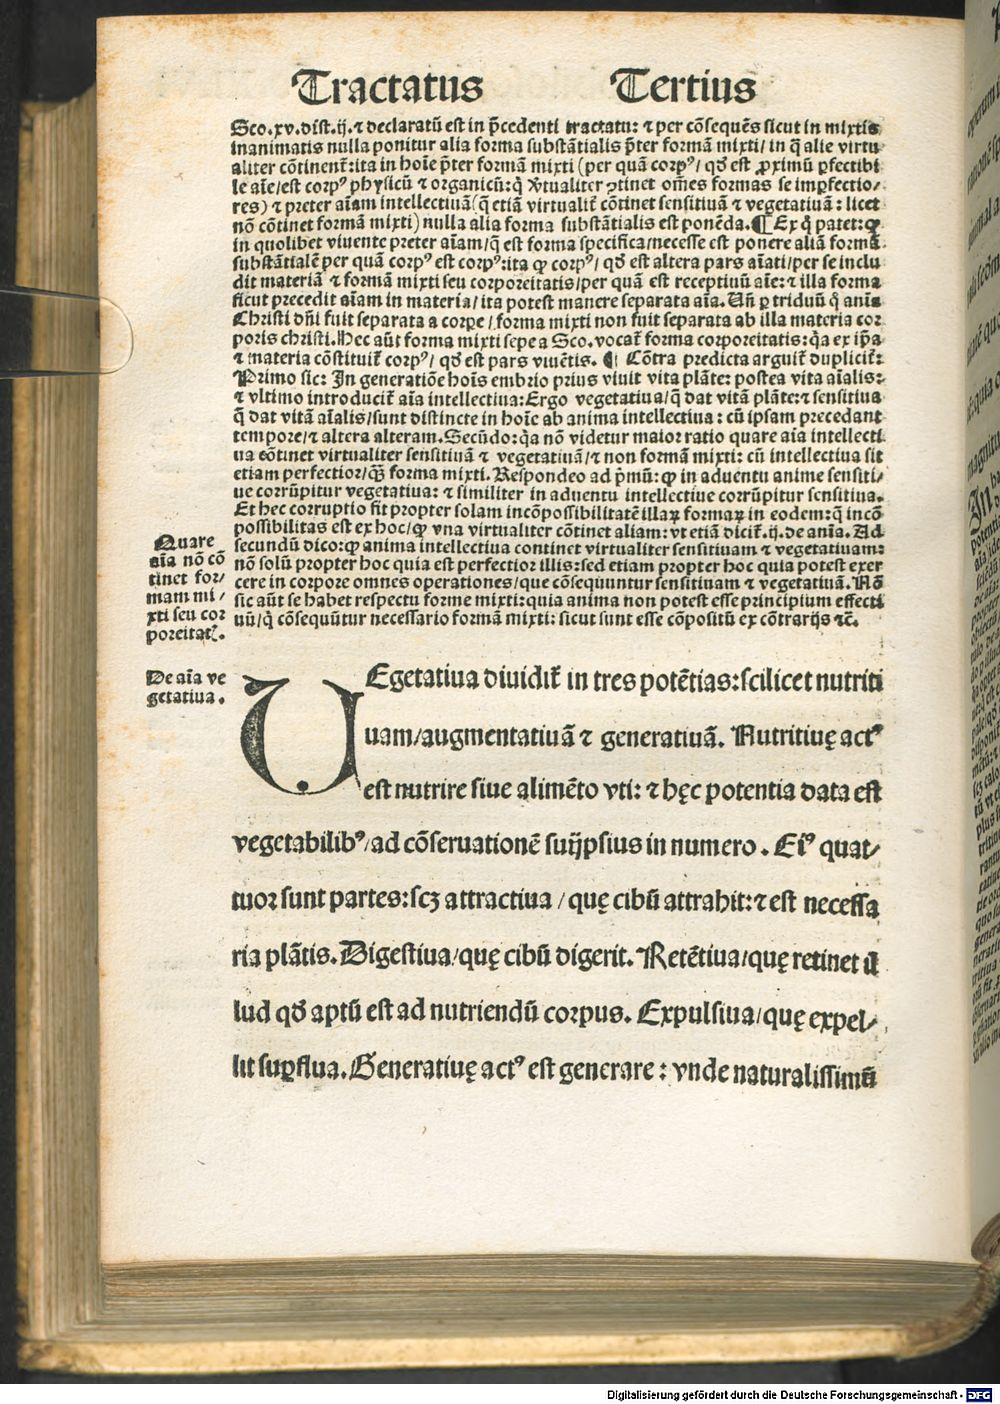 Tractatus Tertius
Sco.xv.dist.ij.⁊ declaratũ est in p̃cedenti tractatu: ⁊ per cõsequẽs sicut in mixtis
inanimatis nulla ponitur alia forma substãtialis p̃ter formã mixti/ in q̃ alie virtu
aliter cõtinent̃:ita in hoĩe p̃ter formã mixti (per quã corpꝰ/ qđ est ꝓximũ ꝑfectibi
le aĩe/est corpꝰ physicũ ⁊ organicũ:q̃ v̓tualiter ꝯtinet om̃es formas se imꝑfectio/
res) ⁊ preter aĩam intellectiuã(q̃ etiã virtualit̃ cõtinet sensitiuã ⁊ vegetatiuã: licet
nõ cõtinet formã mixti) nulla alia forma substãtialis est ponẽda.¶ Ex q̃ patet:ꝙ
in quolibet viuente preter aĩam/q̃ est forma specifica/necesse est ponere aliã formã
substãtialẽ per quã corpꝰ est corpꝰ:ita ꝙ corpꝰ/ qđ est altera pars aĩati/per se inclu
dit materiã ⁊ formã mixti seu corporeitatis/per quã est receptiuũ aĩe:⁊ illa forma
sicut precedit aĩam in materia/ita potest manere separata aĩa. Uñ ꝑ triduũ q̃ anĩa
Christi dñi fuit separata a corpe/forma mixti non fuit separata ab illa materia cor
poris christi.Hec aũt forma mixti sepe a Sco.vocat̃ forma corporeitatis:q̃a ex ip̃a
⁊ materia cõstituit̃ corpꝰ/ qđ est pars viuẽtis. ¶ Cõtra predicta arguit̃ duplicit̃:
Primo sic: In generatiõe hoĩs embrio prius viuit vita plãte: postea vita aĩalis:
⁊ vltimo introducit̃ aĩa intellectiua:Ergo vegetatiua/q̃ dat vitã plãte:⁊ sensitiua
q̃ dat vitã aĩalis/sunt distincte in hoĩe ab anima intellectiua: cũ ipsam precedant
tempore/⁊ altera alteram.Secũdo:q̃a nõ videtur maior ratio quare aĩa intellecti
ua cõtinet virtualiter sensitiuã ⁊ vegetatiuã/⁊ non formã mixti: cũ intellectiua sit
etiam perfectior/q̃ȝ forma mixti. Respondeo ad p̃mũ: ꝙ in aduentu anime sensiti/
ue corrũpitur vegetatiua: ⁊ similiter in aduentu intellectiue corrũpitur sensitiua.
Et hec corruptio fit propter solam incõpossibilitatẽ illaꝝ formaꝝ in eodem:q̃ incõ
possibilitas est ex hoc/ꝙ vna virtualiter cõtinet aliam: vt etiã dicit̃.ij.de anĩa. Ad
secundũ dico:ꝙ anima intellectiua continet virtualiter sensitiuam ⁊ vegetatiuam:
nõ solũ propter hoc quia est perfectior illis:sed etiam propter hoc quia potest exer
cere in corpore omnes operationes/que cõsequuntur sensitiuam ⁊ vegetatiuã. Nõ
sic aũt se habet respectu forme mixti:quia anima non potest esse principium effecti
uũ/q̃ cõsequũtur necessario formã mixti: sicut sunt esse cõpositũ ex cõtrarijs ⁊c̃.
Quare
aĩa nõ cõ
tinet for/
mam mi/
xti seu cor
poreitat̃.
De aĩa ve
getatiua.
VEgetatiua diuidit̃ in tres potẽtias:scilicet nutriti
uam/augmentatiuã ⁊ generatiuã. Nutritiuę actꝰ
est nutrire siue alimẽto vti: ⁊ hęc potentia data est
vegetabilibꝰ/ad cõseruationẽ suijpsius in numero. Eiꝰ quat/
tuor sunt partes:scȝ attractiua / quę cibũ attrahit:⁊ est necessa
ria plãtis.Digestiua/quę cibũ digerit. Retẽtiua/quę retinet il
lud qđ aptũ est ad nutriendũ corpus. Expulsiua/quę expel/
lit suꝑflua.Generatiuę actꝰ est generare: vnde naturalissimũ
Digitalisierung gefördert durch die Deutsche Forschungsgemeinschaft - DFG